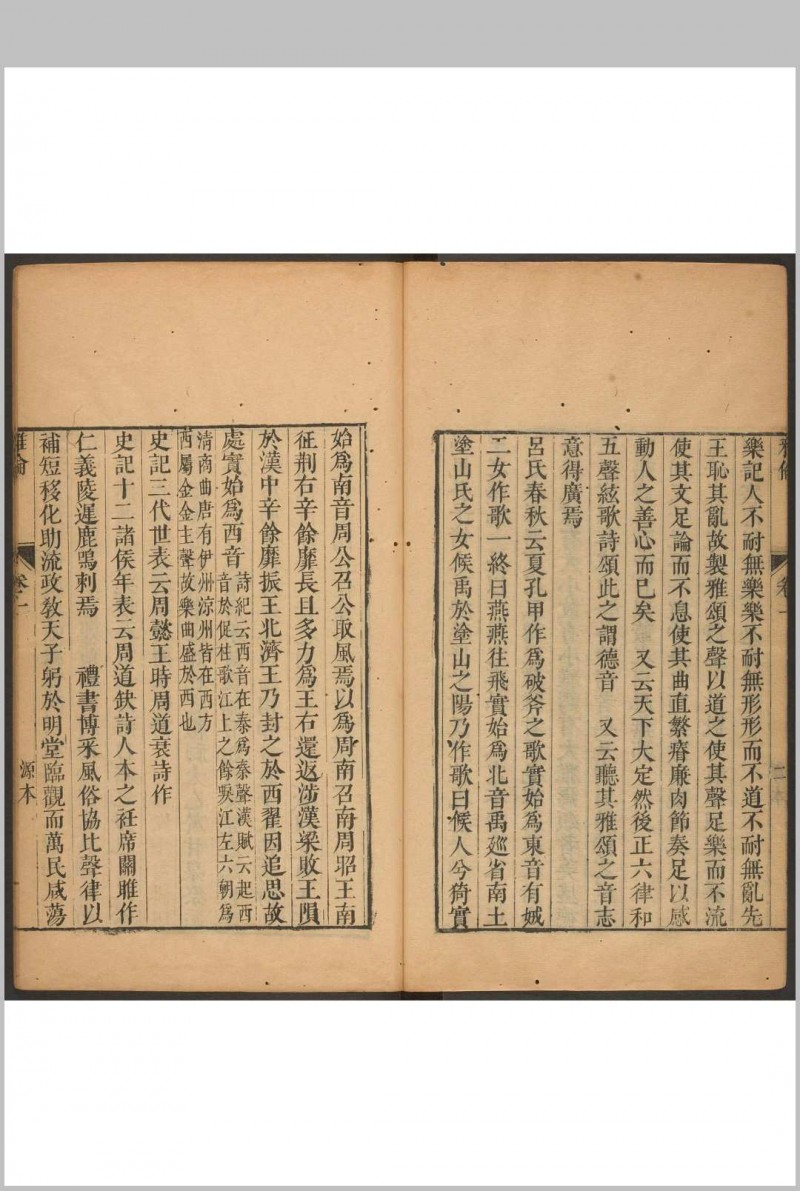 雅倫 卷一 二
樂記人不耐無樂樂不耐無形形而不道不耐無亂先
王恥其亂故製雅頌之聲以道之使其聲足樂而不流
使其文足論而不息使其曲直繁瘠廉肉節奏足以感
動人之善心而已矣 又云天下大定然後正六律和
五聲絃歌詩頌此之謂德音 又云聽其雅頌之音志
意得廣焉
呂氏春秋云夏孔甲作為破斧之歌實始為東音有娀
二女作歌一終曰燕燕往飛實始為北音禹巡省南土
塗山氏之女候禹於塗山之陽乃作歌曰候人兮猗實
始為南音周公召公取風焉以為周南召南周昭王南
征荆右辛餘靡長且多力為王右還返涉漢梁敗王隕
於漢中辛餘靡振王北濟王乃封之於西翟因追思故
處實始為西音 詩紀云西音在秦為秦聲漢賦云起西
音於促柱歌江上之餘厲江左六朝為
清商曲唐有伊州凉州皆在西方
西屬金金主聲故樂曲盛於西也
史記三代世表云周懿王時周道衰詩作
史記十二諸侯年表云周道缺詩人本之衽席關雎作
仁義陵遲鹿鳴刺焉 禮書博采風俗協比聲律以
補短移化助流政敎天子躬於明堂臨觀而萬民咸蕩
雅倫 卷一 源本